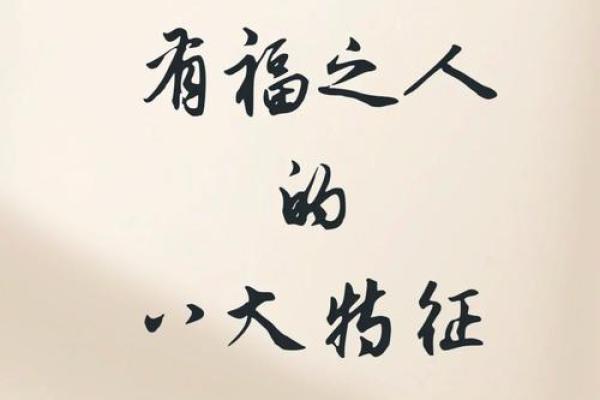 有福之人
的
八大特征